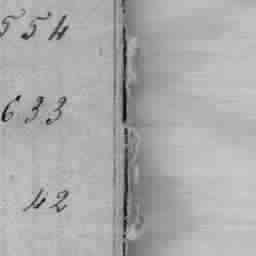 554
633
42